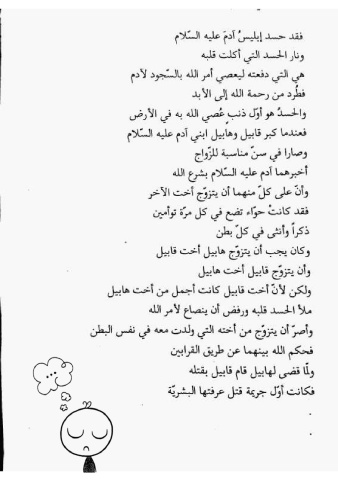 فقد حسد إبليسُ آدمَ عليه السّلام
ونار الحسد التي أكلت قلبه
هي التي دفعته ليعصي أمر الله بالسّجود لآدم
فطُرد من رحمة الله إلى الأبد
والحسدُ هو أوّل ذنب عُصي الله به في الأرض
فعندما كبر قابيل وهابيل ابني آدم عليه السّلام
وصارا في سنّ مناسبة للزّواج
أخبرهما آدم عليه السّلام بشرع الله
وأنّ على كلّ منهما أن يتزوّج أخت الآخر
فقد كانتْ حوّاء تضع في كل مرّة توأمين
ذكراً وأنثى في كلّ بطن
وكان يجب أن يتزوّج هابيل أخت قابيل
وأن يتزوّج قابيل أخت هابيل
ولكن لأنّ أخت قابيل كانت أجمل من أخت هابيل
ملأ الحسد قلبه ورفض أن ينصاع لأمر الله
وأصرّ أن يتزوّج من أخته التي ولدت معه في نفس البطن
فحكم الله بينهما عن طريق القرابين
ولمّا قضى لهابيل قام قابيل بقتله
فكانت أوّل جريمة قتل عرفتها البشريّة
.
.